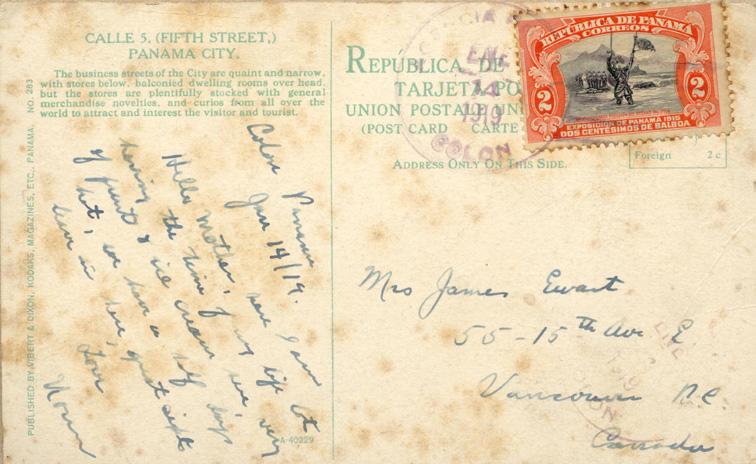 CALLE 5, (FIFTH STREET,)
PANAMA CITY.
The business streets of the City are quaint and narrow,
with stores below, balconied dwelling rooms over head,
but the stores are plentifully stocked with general
merchandise novelties, and curios from all over the
world to attract and interest the visitor and tourist.
PUBLISHED BY VIBERT & DIXON, KODAKS, MAGAZINES, ETC., PANAMA. NO. 283
Colon Panama
Jan 14/19.
Hello Mother, here I am
having the time of my life lots
of fruit & ice cream here, very
hot, we have a half days
leave in here, great sights
Love
Norm
A-40229
REPÚBLICA DE
TARJETA PO
UNION POSTALE UN
(POST CARD CARTE
ADDRESS ONLY ON THIS SIDE.
ENE
14
1919
COLON
REPÚBLICA DE PANAMÁ
CORREOS
2 2
EXPOSICIÓN DE PANAMÁ 1915
DOS CENTÉSIMOS DE BALBOA
Foreign 2 c
Mrs James Ewart
55-15th Ave E
Vancouver B.C.
Canada